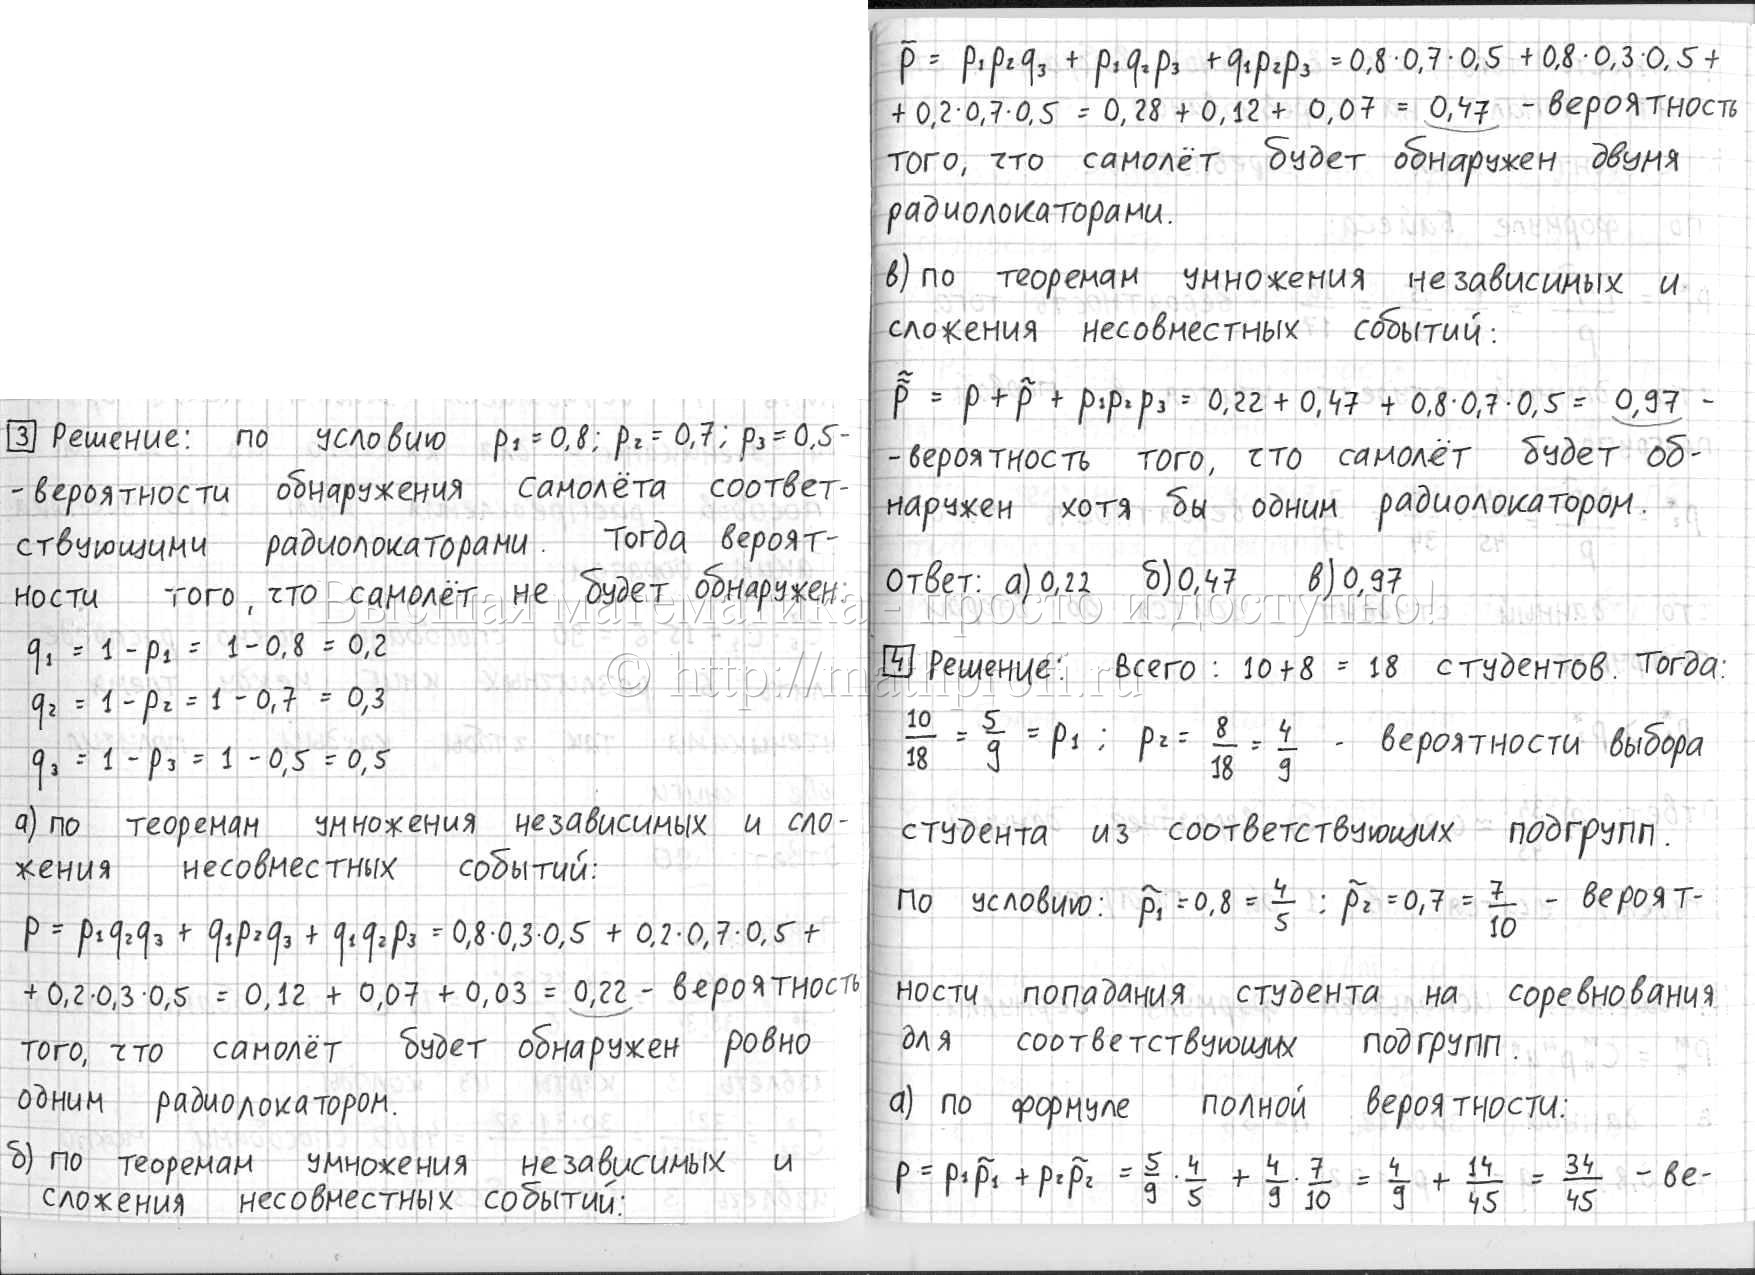 3 Решение: по условию p₁ = 0,8; p₂ = 0,7; p₃ = 0,5 -
- вероятности обнаружения самолёта соответ-
ствующими радиолокаторами. Тогда вероят-
ности того, что самолёт не будет обнаружен:
q₁ = 1 - p₁ = 1 - 0,8 = 0,2
q₂ = 1 - p₂ = 1 - 0,7 = 0,3
q₃ = 1 - p₃ = 1 - 0,5 = 0,5
а) по теоремам умножения независимых и сло-
жения несовместных событий:
p = p₁q₂q₃ + q₁p₂q₃ + q₁q₂p₃ = 0,8·0,3·0,5 + 0,2·0,7·0,5 +
+ 0,2·0,3·0,5 = 0,12 + 0,07 + 0,03 = 0,22 - вероятность
того, что самолёт будет обнаружен ровно
одним радиолокатором.
б) по теоремам умножения независимых и
сложения несовместных событий:
p̃ = p₁p₂q₃ + p₁q₂p₃ + q₁p₂p₃ = 0,8·0,7·0,5 + 0,8·0,3·0,5 +
+ 0,2·0,7·0,5 = 0,28 + 0,12 + 0,07 = 0,47 - вероятность
того, что самолёт будет обнаружен двумя
радиолокаторами.
в) по теоремам умножения независимых и
сложения несовместных событий:
p̃̃ = p + p̃ + p₁p₂p₃ = 0,22 + 0,47 + 0,8·0,7·0,5 = 0,97 -
- вероятность того, что самолёт будет об-
наружен хотя бы одним радиолокатором.
Ответ: а) 0,22 б) 0,47 в) 0,97
4 Решение: Всего: 10 + 8 = 18 студентов. Тогда:
10/18 = 5/9 = p₁; p₂ = 8/18 = 4/9 - вероятности выбора
студента из соответствующих подгрупп.
По условию: p̃₁ = 0,8 = 4/5; p̃₂ = 0,7 = 7/10 - вероят-
ности попадания студента на соревнования
для соответствующих подгрупп.
а) по формуле полной вероятности:
p = p₁p̃₁ + p₂p̃₂ = 5/9 · 4/5 + 4/9 · 7/10 = 4/9 + 14/45 = 34/45 - ве-
Высшая математика - просто и доступно!
© http://mathprofi.ru